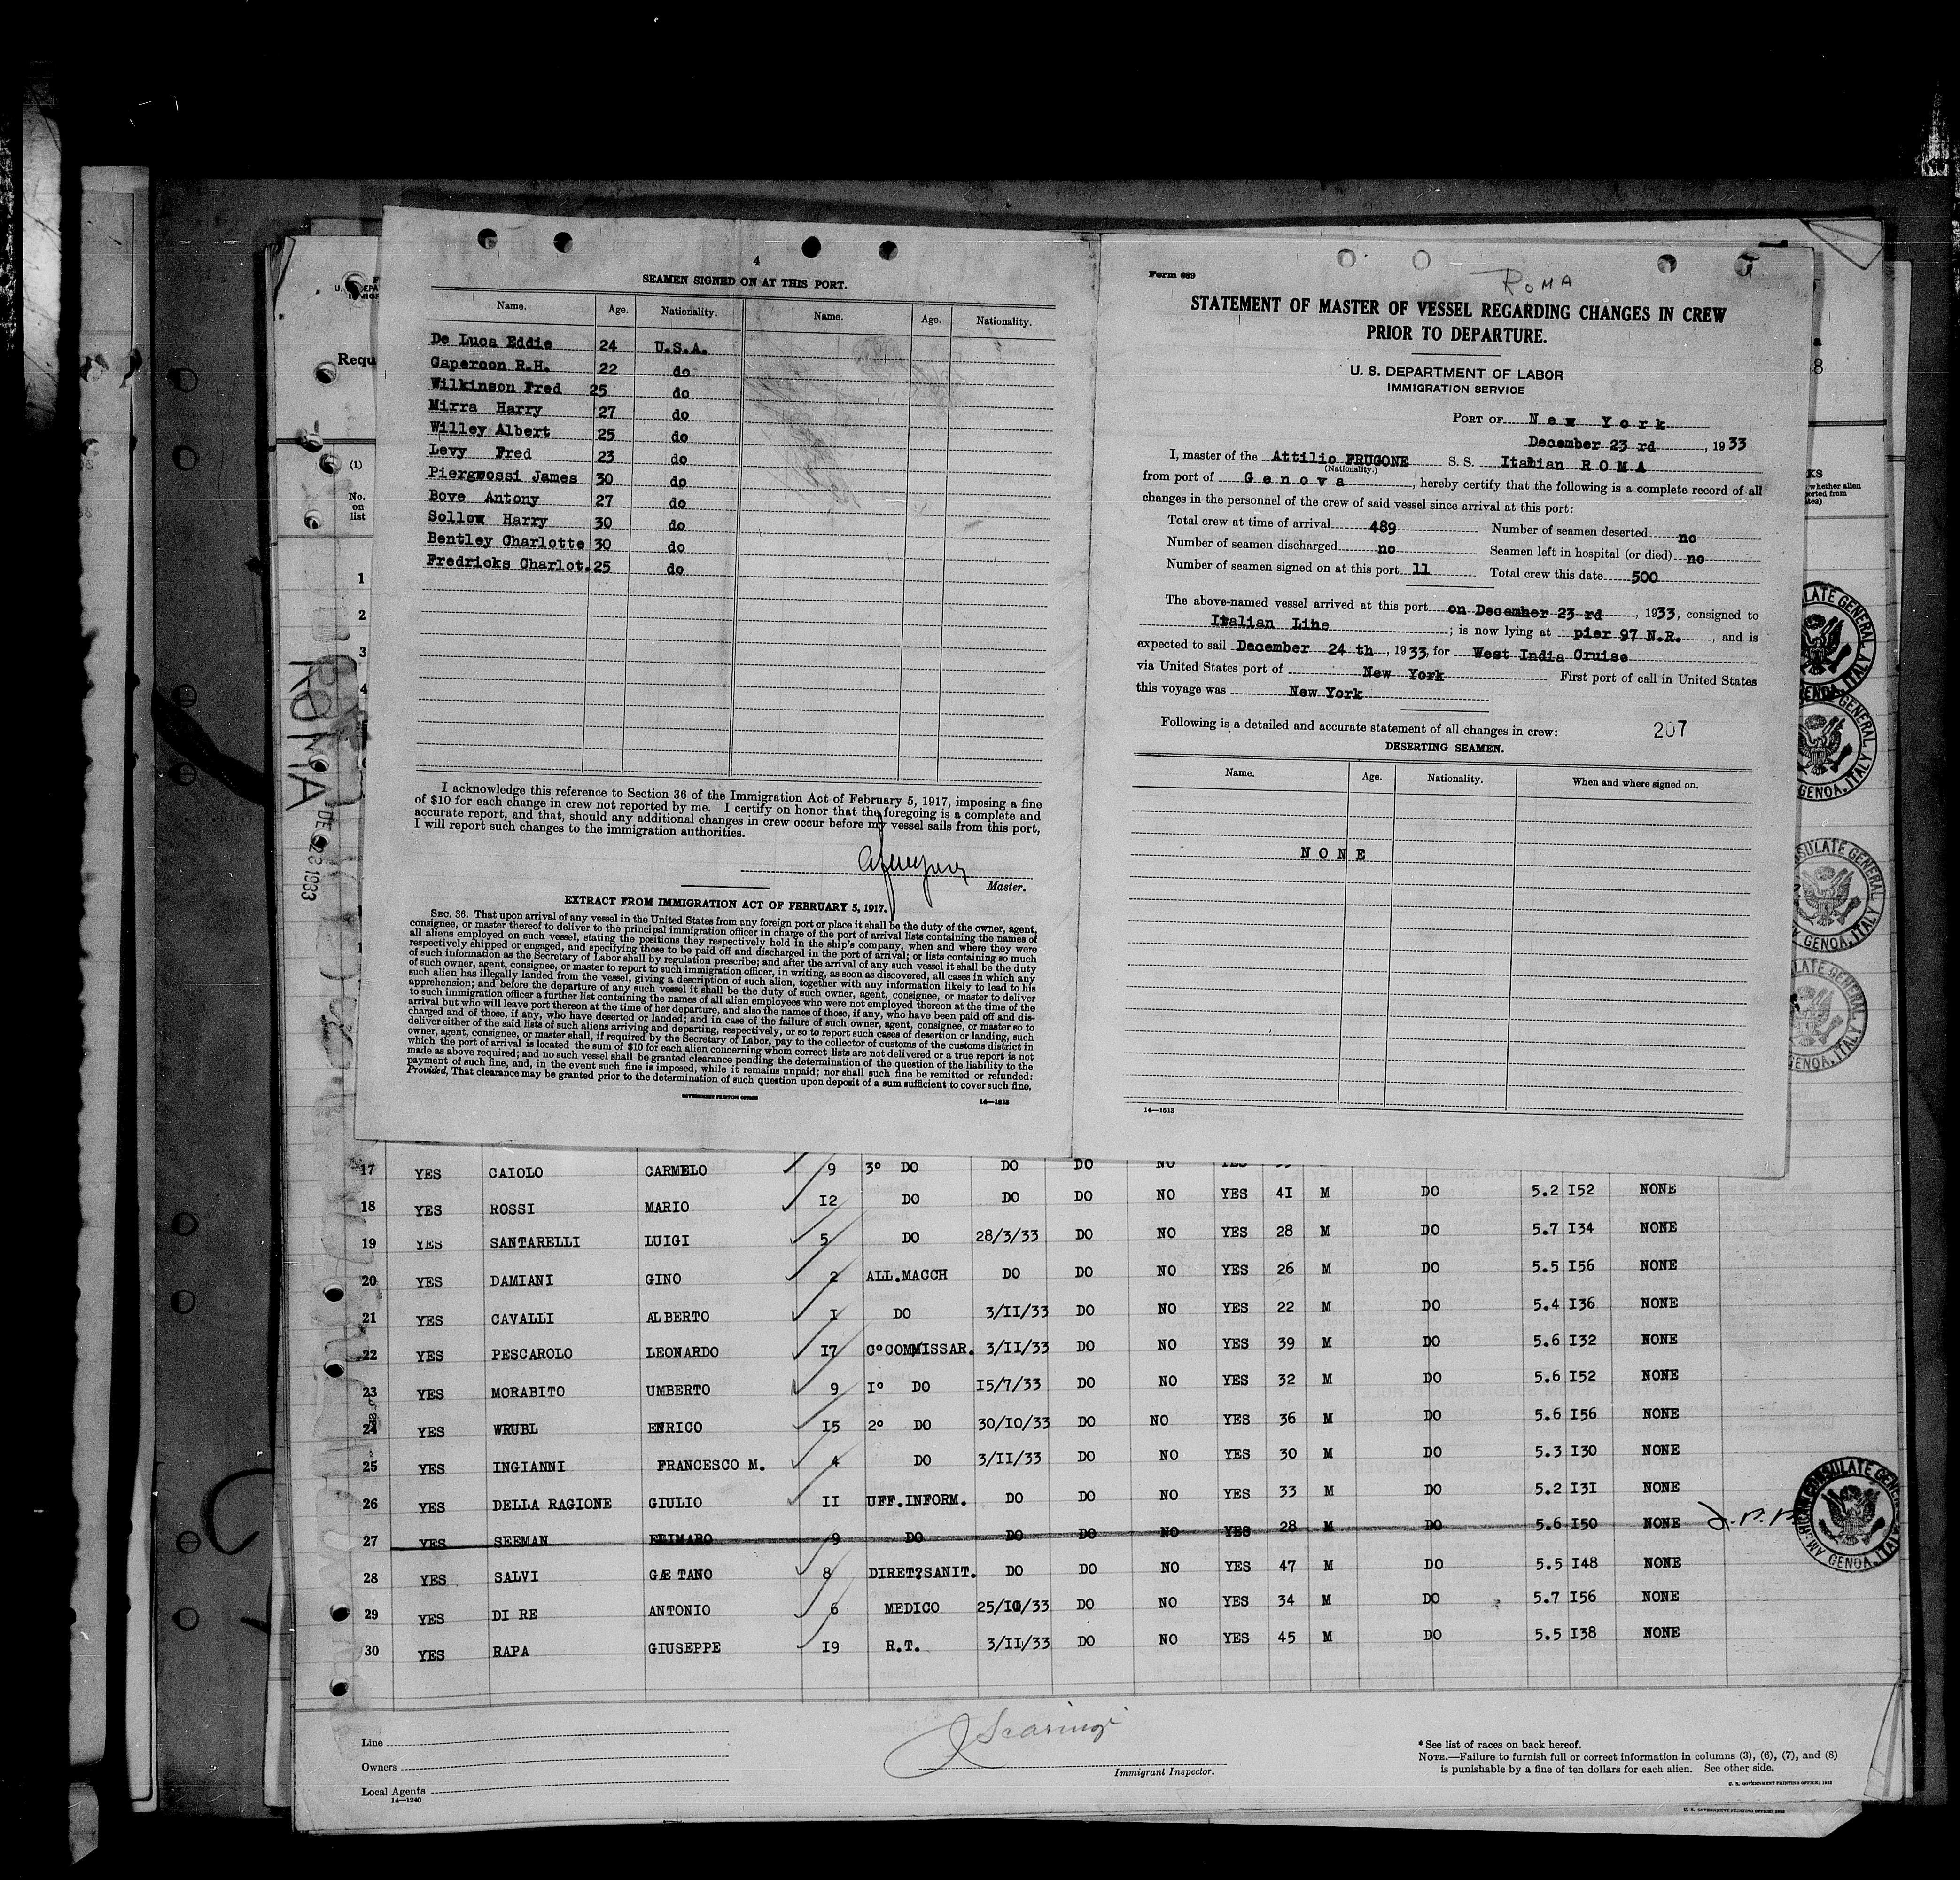 4
SEAMEN SIGNED ON AT THIS PORT.
Name. Age. Nationality. Name. Age. Nationality.
De Luca Eddie 24 U.S.A.
Caperoon R.H. 22 do
Wilkinson Fred 25 do
Mirra Harry 27 do
Willey Albert 25 do
Levy Fred 23 do
Piergrossi James 30 do
Bove Antony 27 do
Sollow Harry 30 do
Bentley Charlotte 30 do
Fredricks Charlot. 25 do
I acknowledge this reference to Section 36 of the Immigration Act of February 5, 1917, imposing a fine
of $10 for each change in crew not reported by me. I certify on honor that the foregoing is a complete and
accurate report, and that, should any additional changes in crew occur before my vessel sails from this port,
I will report such changes to the immigration authorities.
Master.
EXTRACT FROM IMMIGRATION ACT OF FEBRUARY 5, 1917.
SEC. 36. That upon arrival of any vessel in the United States from any foreign port or place it shall be the duty of the owner, agent,
consignee, or master thereof to deliver to the principal immigration officer in charge of the port of arrival lists containing the names of
all aliens employed on such vessel, stating the positions they respectively hold in the ship's company, when and where they were
respectively shipped or engaged, and specifying those to be paid off and discharged in the port of arrival; or lists containing so much
of such information as the Secretary of Labor shall by regulation prescribe; and after the arrival of any such vessel it shall be the duty
of such owner, agent, consignee, or master to report to such immigration officer, in writing, as soon as discovered, all cases in which any
such alien has illegally landed from the vessel, giving a description of such alien, together with any information likely to lead to his
apprehension; and before the departure of any such vessel it shall be the duty of such owner, agent, consignee, or master to deliver
to such immigration officer a further list containing the names of all alien employees who were not employed thereon at the time of the
arrival but who will leave port thereon at the time of her departure, and also the names of those, if any, who have been paid off and dis-
charged and of those, if any, who have deserted or landed; and in case of the failure of such owner, agent, consignee, or master so to
deliver either of the said lists of such aliens arriving and departing, respectively, or so to report such cases of desertion or landing, such
owner, agent, consignee, or master shall, if required by the Secretary of Labor, pay to the collector of customs of the customs district in
which the port of arrival is located the sum of $10 for each alien concerning whom correct lists are not delivered or a true report is not
made as above required; and no such vessel shall be granted clearance pending the determination of the question of the liability to the
payment of such fine, and, in the event such fine is imposed, while it remains unpaid; nor shall such fine be remitted or refunded:
Provided, That clearance may be granted prior to the determination of such question upon deposit of a sum sufficient to cover such fine.
GOVERNMENT PRINTING OFFICE
14—1613
Form 689
ROMA
STATEMENT OF MASTER OF VESSEL REGARDING CHANGES IN CREW
PRIOR TO DEPARTURE.
U. S. DEPARTMENT OF LABOR
IMMIGRATION SERVICE
PORT OF New York
December 23 rd, 1933
I, master of the Attilio FRUGONE S. S. Italian ROMA
(Nationality.)
from port of Genova, hereby certify that the following is a complete record of all
changes in the personnel of the crew of said vessel since arrival at this port:
Total crew at time of arrival 489 Number of seamen deserted no
Number of seamen discharged no Seamen left in hospital (or died) no
Number of seamen signed on at this port 11 Total crew this date 500
The above-named vessel arrived at this port on December 23 rd, 1933, consigned to
Italian Line; is now lying at pier 97 N.R., and is
expected to sail December 24 th, 1933, for West India Cruise
via United States port of New York First port of call in United States
this voyage was New York
Following is a detailed and accurate statement of all changes in crew: 207
DESERTING SEAMEN.
Name. Age. Nationality. When and where signed on.
NONE
14—1613
Requ
(1)
No.
on
list
1
2
3
4
ROMA
DE 23 1933
17 YES CAIOLO CARMELO 9 3º DO DO DO NO YES
18 YES ROSSI MARIO 12 DO DO DO NO YES 41 M DO 5.2 I52 NONE
19 YES SANTARELLI LUIGI 5 DO 28/3/33 DO NO YES 28 M DO 5.7 I34 NONE
20 YES DAMIANI GINO 2 ALL.MACCH DO DO NO YES 26 M DO 5.5 I56 NONE
21 YES CAVALLI ALBERTO I DO 3/II/33 DO NO YES 22 M DO 5.4 I36 NONE
22 YES PESCAROLO LEONARDO I7 CºCOMMISSAR. 3/II/33 DO NO YES 39 M DO 5.6 I32 NONE
23 YES MORABITO UMBERTO 9 Iº DO I5/7/33 DO NO YES 32 M DO 5.6 I52 NONE
24 YES WRUBL ENRICO I5 2º DO 30/IO/33 DO NO YES 36 M DO 5.6 I56 NONE
25 YES INGIANNI FRANCESCO M. 4 DO 3/II/33 DO NO YES 30 M DO 5.3 I30 NONE
26 YES DELLA RAGIONE GIULIO II UFF.INFORM. DO DO NO YES 33 M DO 5.2 I3I NONE
27 YES SEEMAN ERIMARO 9 DO DO DO NO YES 28 M DO 5.6 I50 NONE
28 YES SALVI GÆTANO 8 DIRET?SANIT. DO DO NO YES 47 M DO 5.5 I48 NONE
29 YES DI RE ANTONIO 6 MEDICO 25/10/33 DO NO YES 34 M DO 5.7 I56 NONE
30 YES RAPA GIUSEPPE I9 R.T. 3/II/33 DO NO YES 45 M DO 5.5 I38 NONE
AMERICAN CONSULATE GENERAL
GENOA, ITALY
Line
Owners
Local Agents
14—1240
Scaringi
Immigrant Inspector.
* See list of races on back hereof.
NOTE.—Failure to furnish full or correct information in columns (3), (6), (7), and (8)
is punishable by a fine of ten dollars for each alien. See other side.
U. S. GOVERNMENT PRINTING OFFICE: 1932